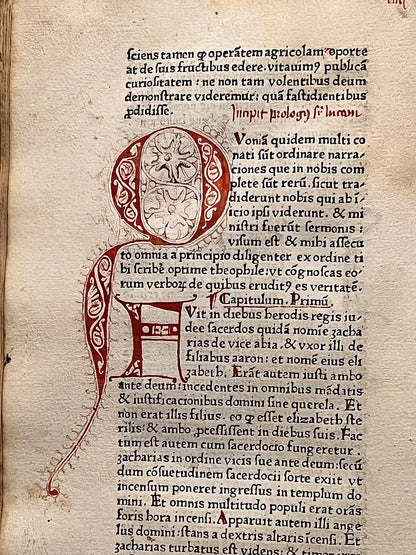 sciens tamen ꝙ operātem agricolam oporte
at de suis fructibus edere. vitauimꝰ publicā
curiositatem : ne non tam volentibus deum
demonstrare videremur: quā fastidientibus
ꝓdidisse. Incipit prologꝰ
QVoniā quidem multi co
nati sūt ordinare narra⸗
tiones que in nobis com
plete sūt rerū. sicut tra⸗
diderunt nobis qui ab i
icio ipsi viderunt. & mi
nistri fuerūt sermonis :
visum est & mihi assecu
to omnia a principio diligenter ex ordine ti
bi scribē optime theophile: vt cognoscas eo⸗
rum verboꝝ de quibus eruditꝰ es veritatē.
Capitulum. Primū.
FVit in diebus herodis regis iu⸗
dee sacerdos quidā nomīe zacha
rias de vice abia. & vxor illi de
filiabus aaron: et nomē eius eli
zabeth. Erāt autem iusti ambo
ante deum: incedentes in omnibus mādatis
& iustificacionibus domini sine querela. Et
non erat illis filius. eo ꝙ esset elizabeth ste
rilis: & ambo ꝓcessissent in diebus suis. Fac
tum est autem cum sacerdocio fungeretur
zacharias in ordine vicis sue ante deum: secū
dum cōsuetudinem sacerdocii sorte exiit vt
incensum poneret ingressus in templum do
mini. Et omnis multitudo populi erat orās
foris hora incensi. Apparuit autem illi ange
lus domini: stans a dextris altaris incensi. Et
zacharias turbatus est videns: & timor